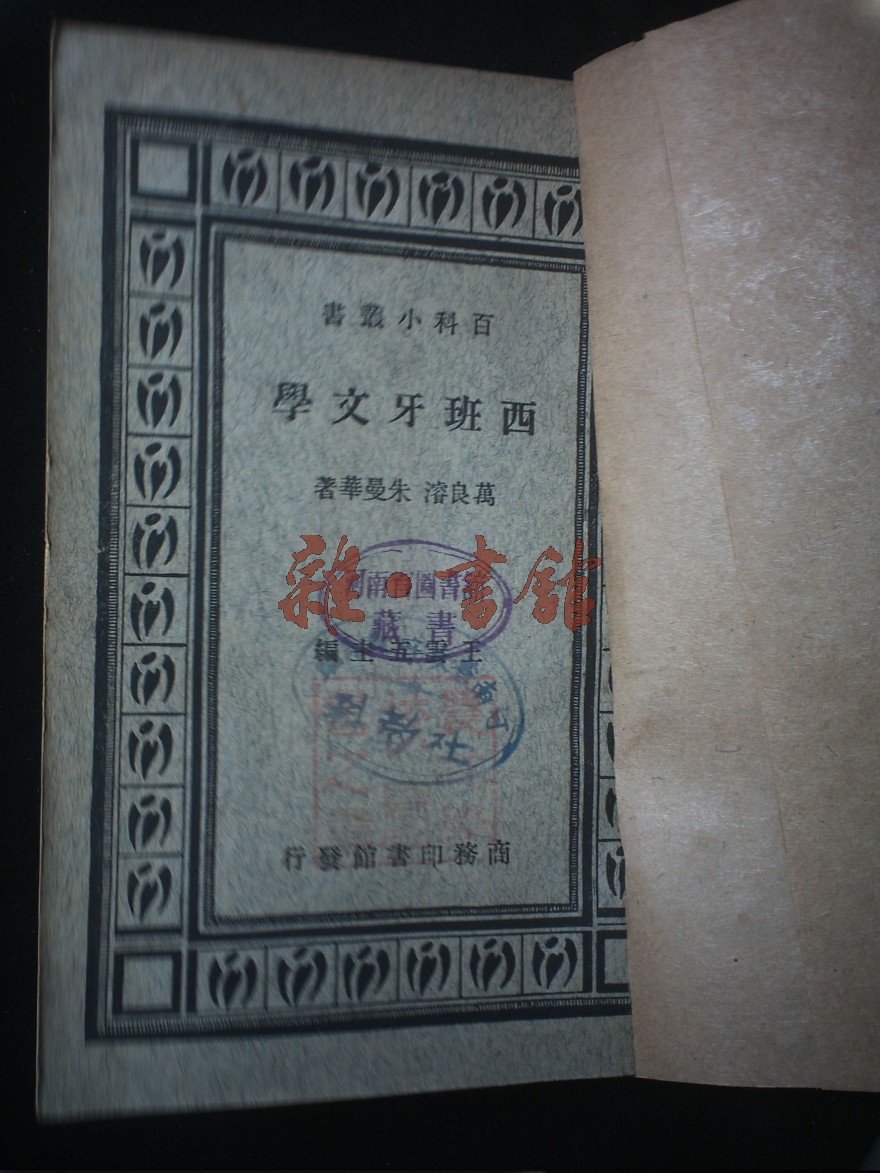 百科小叢書
西班牙文學
萬良濬 朱曼華著
雜·書館
書藏
王雲五主編
商務印書館發行